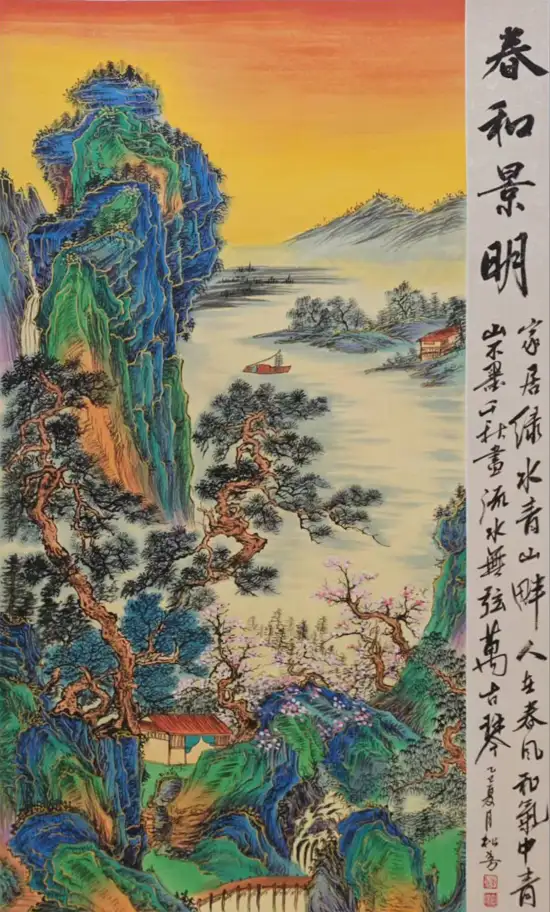 春和景明
家居绿水青山畔人在春风和氣中青
山不墨千秋畫流水無弦萬古琴
夏月松